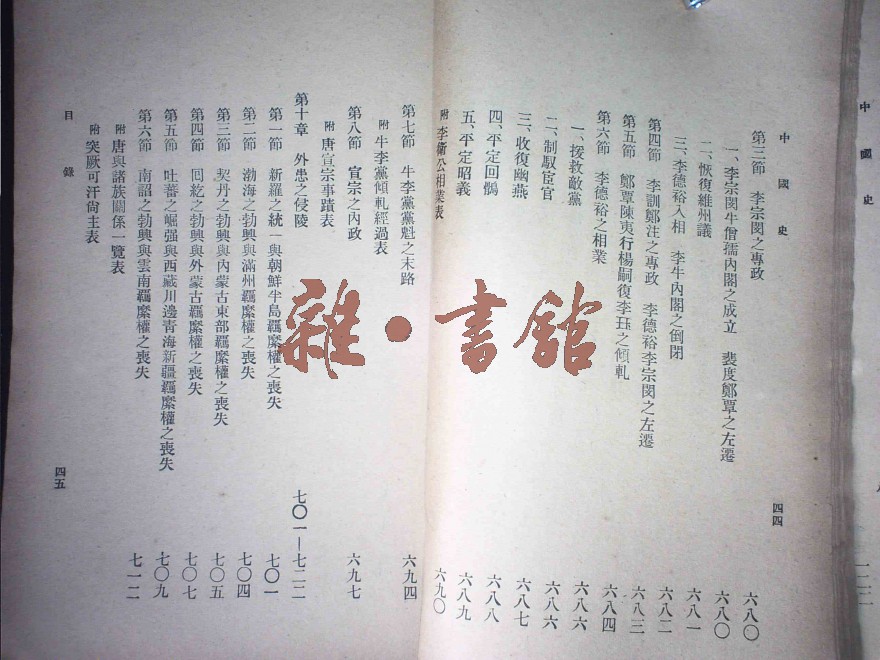 中國史
四四
第三節 李宗閔之專政 六八〇
一、李宗閔牛僧孺內閣之成立 裴度鄭覃之左遷 六八〇
二、恢復維州議 六八一
三、李德裕入相 李牛內閣之倒閉 六八二
第四節 李訓鄭注之專政 李德裕李宗閔之左遷 六八三
第五節 鄭覃陳夷行楊嗣復李珏之傾軋 六八四
第六節 李德裕之相業 六八六
一、援救敵黨 六八六
二、制馭宦官 六八七
三、收復幽燕 六八八
四、平定回鶻 六八九
五、平定昭義 六九〇
附 李衛公相業表
第七節 牛李黨黨魁之末路 六九四
附 牛李黨傾軋經過表
第八節 宣宗之內政 六九七
附 唐宣宗事蹟表
第十章 外患之侵陵 七〇一—七二二
第一節 新羅之統一與朝鮮半島羈縻權之喪失 七〇一
第二節 渤海之勃興與滿州羈縻權之喪失 七〇四
第三節 契丹之勃興與內蒙古東部羈縻權之喪失 七〇五
第四節 回紇之勃興與外蒙古羈縻權之喪失 七〇七
第五節 吐蕃之崛强與西藏川邊青海新疆羈縻權之喪失 七〇九
第六節 南詔之勃興與雲南羈縻權之喪失 七一二
附 唐與諸族關係一覽表
附 突厥可汗尙主表
目錄
四五
雜·書館
中國史